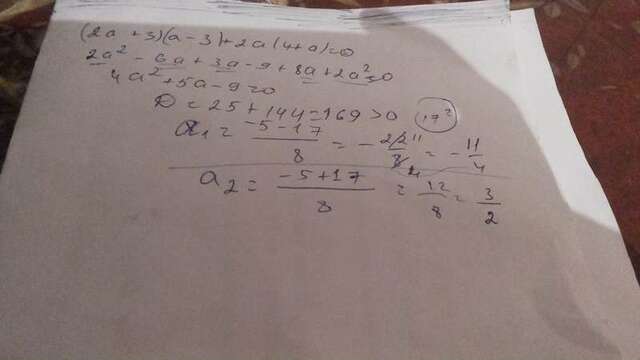 (2a + 3)(a - 3) + 2a(4 + a) = 0
2a² - 6a + 3a - 9 + 8a + 2a² = 0
4a² + 5a - 9 = 0
D = 25 + 144 = 169 > 0 (17²)
a₁ = (-5 - 17)/8 = -22/8 11/4 = -11/4
a₂ = (-5 + 17)/8 = 12/8 = 3/2